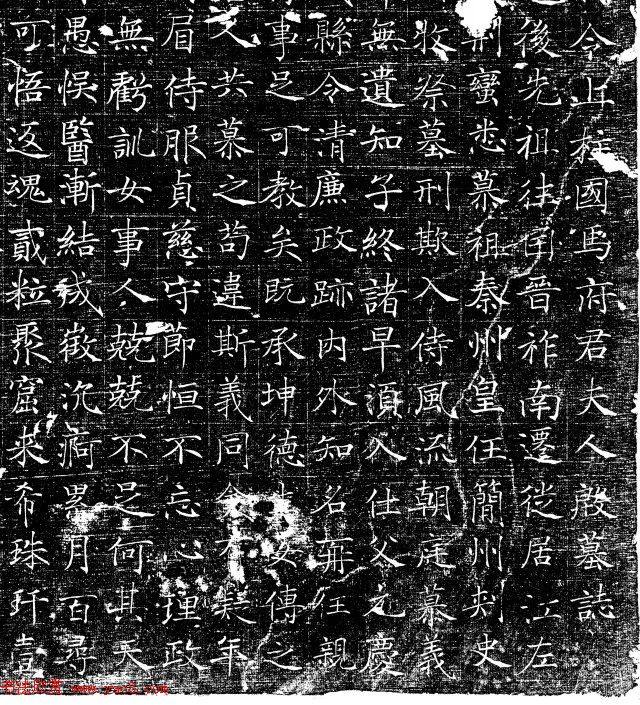 今上柱國馬府君夫人殷墓誌
後先祖往因晉祚南遷從居江左
荊蠻悉慕祖秦州皇任簡州刾史
收祭墓刑欺入侍風流朝庭慕義
無遺知子終諸早湏入仕父元慶
縣令清廉政跡内外知名任親
事足可教矣既承坤德女傳之
共慕之苟違斯義同疑年
眉侍服貞慈守節恒不忘心理政
無虧訓女事人兢兢不足何其天
愚悮醫漸結成微沉痾累月百尋
可悟返魂貳粒聚窟来希珠玕壹